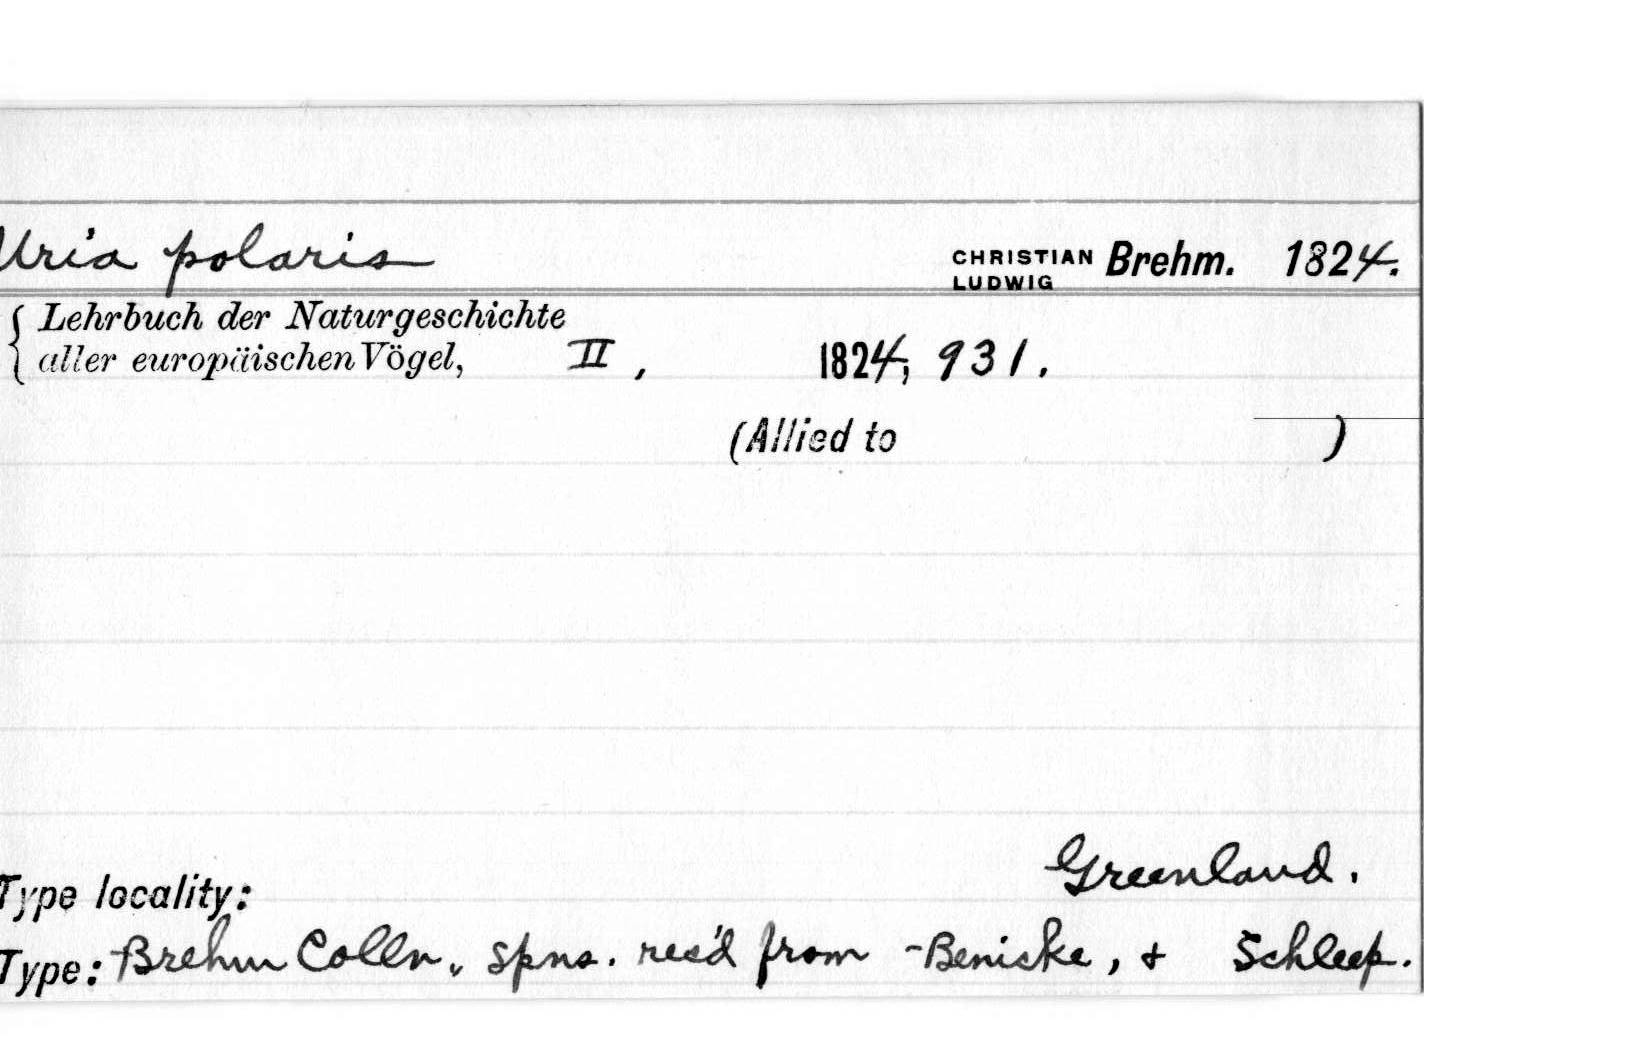 Uria polaris CHRISTIAN LUDWIG Brehm. 1824.
Lehrbuch der Naturgeschichte
aller europäischen Vögel, II, 1824, 931.
(Allied to )
Greenland.
Type locality:
Type: Brehm Colln., spns. rec'd from Benicke, + Schleep.